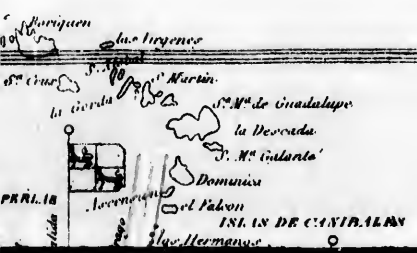 Boriquen
las Virgenes
Sta Cruz
S. Martin
la Gorda
Sta Ma de Guadalupe
la Descada
S. Ma Galante
Dominica
PERLAS
Ascencion
el Falcon
ISLAS DE CANIBALES
las Hermanas